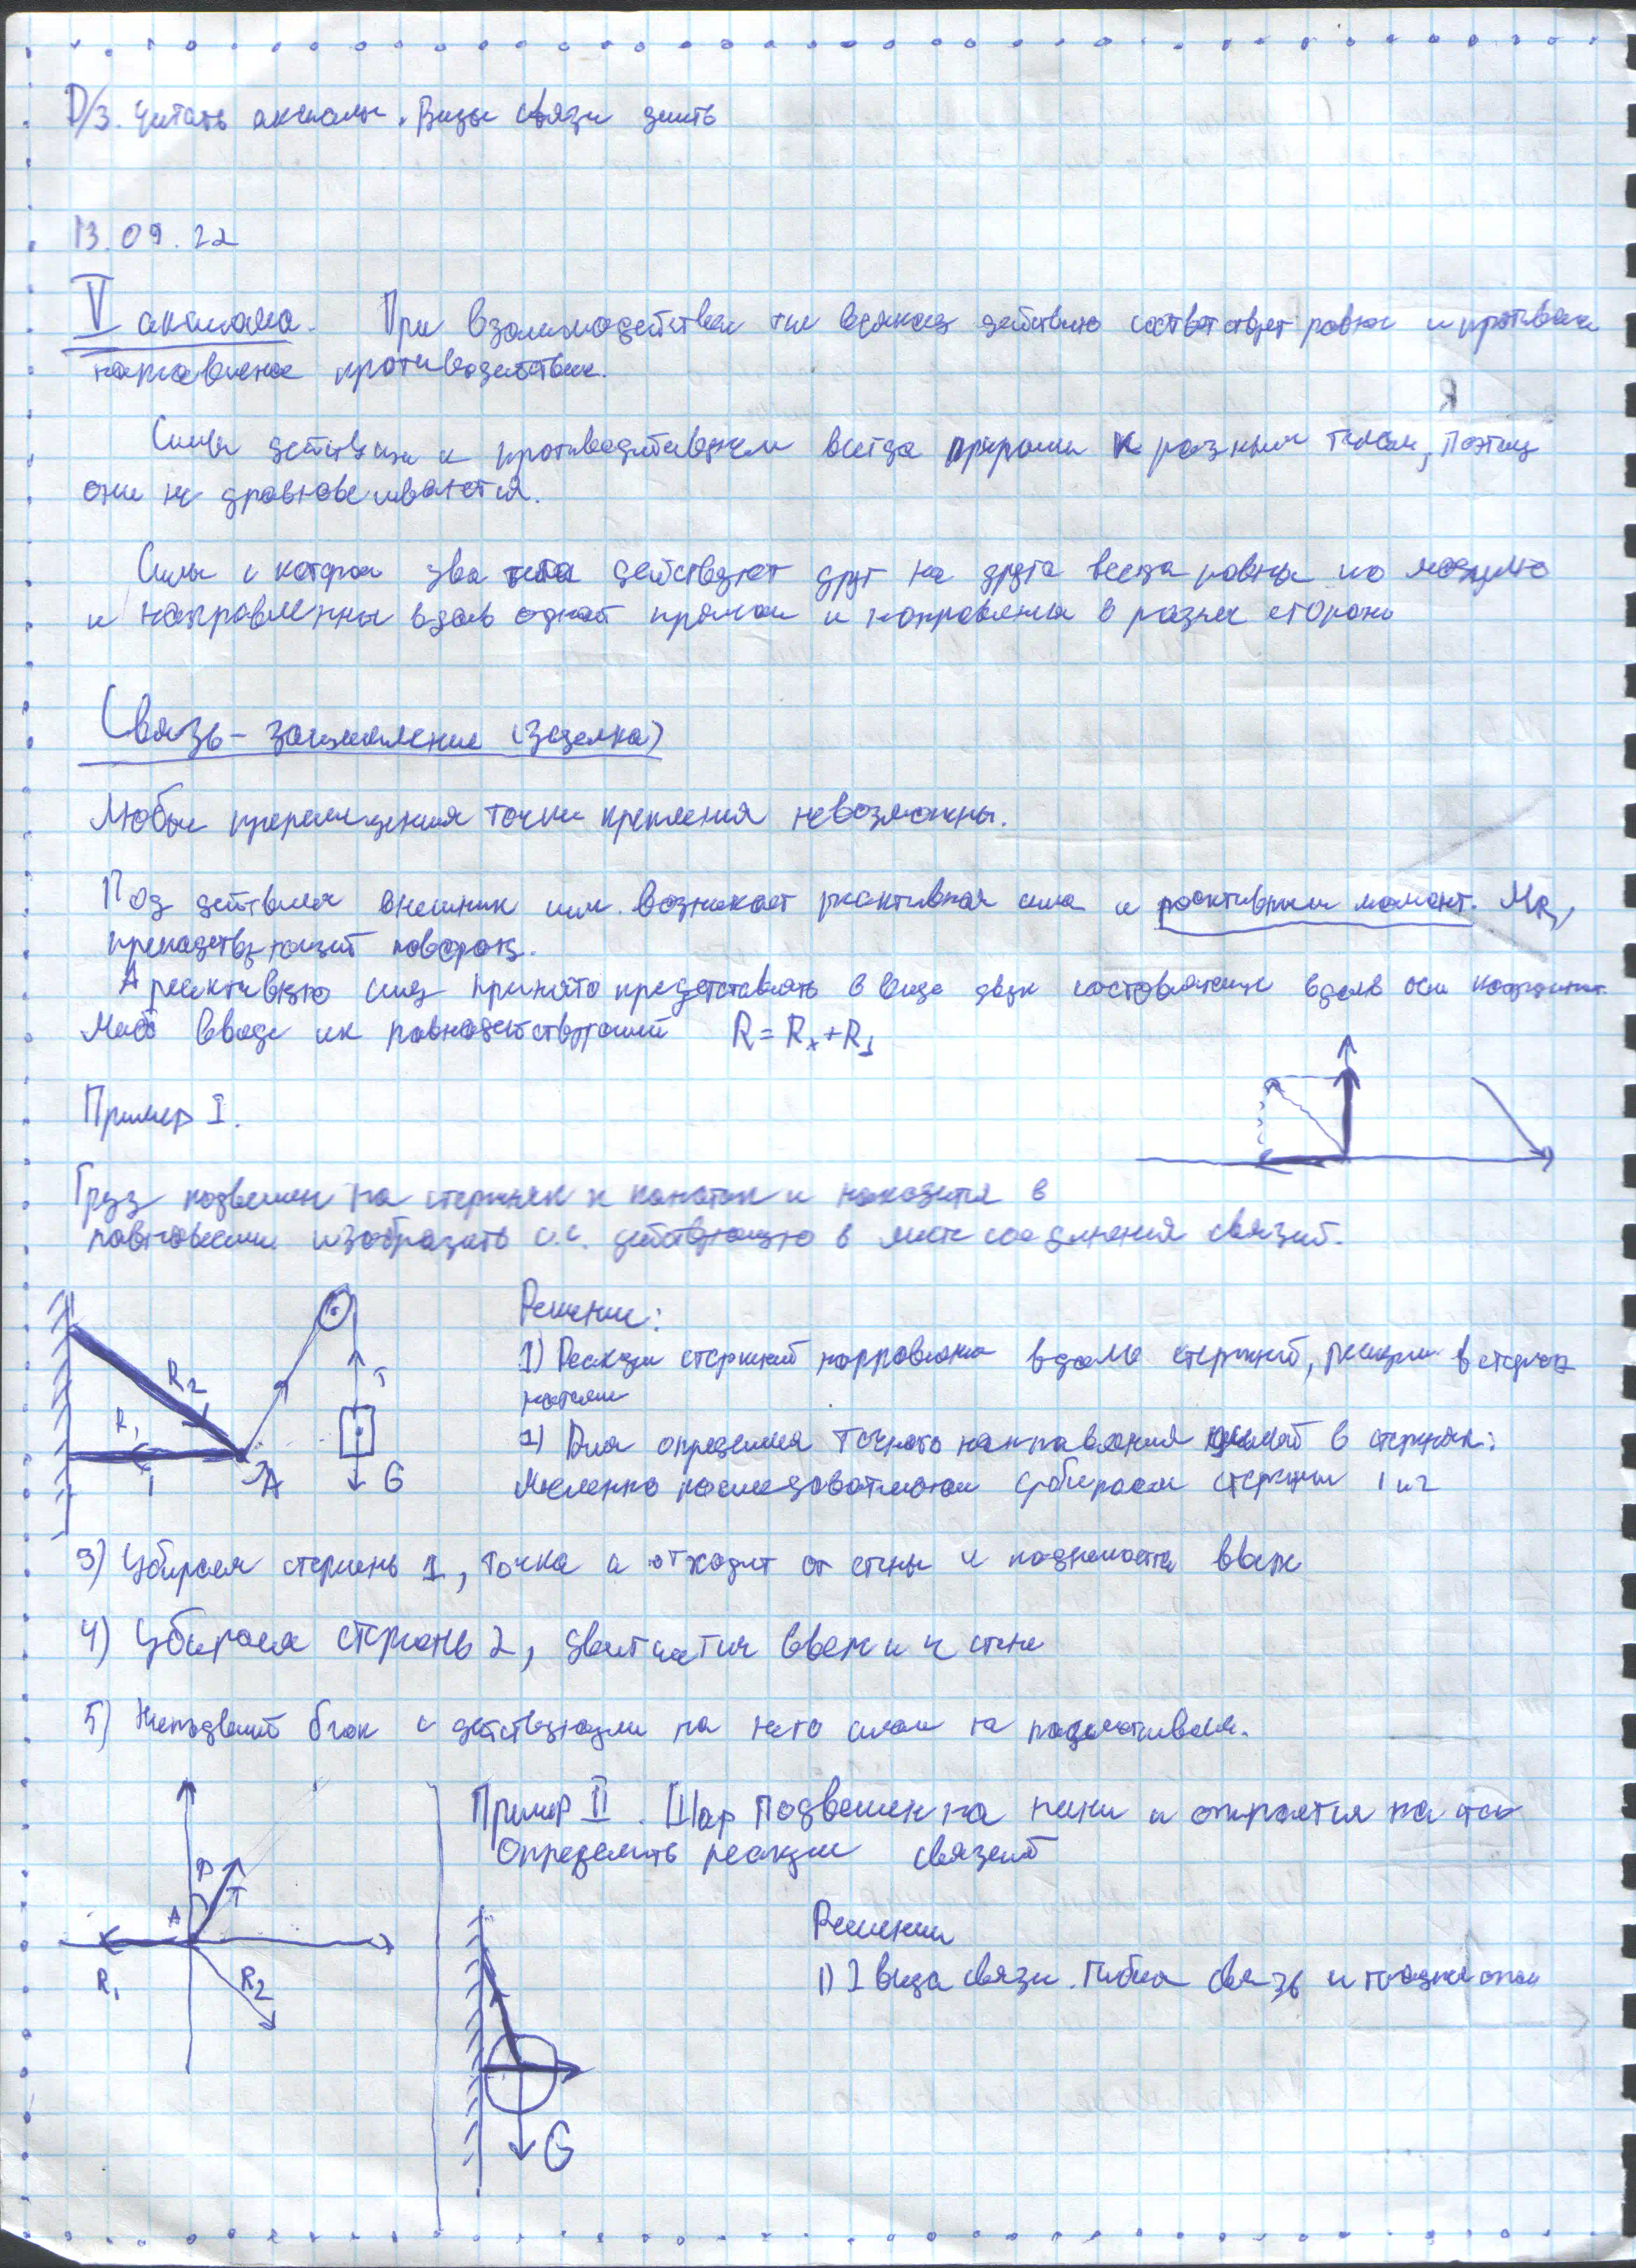 Д/З. Читать аксиомы. Виды связи знать
13.09.22
V аксиома. При взаимодействии тел всякому действию соответствует равное и противоп
направленное противодействие.
Силы действия и противодействия всегда прилож к разным телам, поэтому
они не уравновешиваются.
Силы с которой два тела действуют друг на друга всегда равны по модулю
и направленны вдоль одной прямой и направлены в разные стороны
Связь - защемление (заделка)
Любые перемещения точки крепления невозможны.
Под действием внешних сил. возникает реактивная сила и реактивный момент. MR,
препядствующий повороту.
А реактивную силу принято представлять в виде двух составляющих вдоль оси координат.
Либо ввиде их равнодействующей R = Rx + Ry
Пример I.
Груз подвешен на стержнях и канатах и находится в
равновесии изобразить с.с. действующую в месте соединения связей.
R2
R1
1
A
T
G
Решение:
1) Реакции стержней направлены вдоль стержней, реакции в сторону
нити
2) Для определения точного направления в стержнях:
Мысленно последовательно убираем стержни 1 и 2
3) Убираем стержень 1, точка а отходит от стены и поднимается вверх
4) Убираем стержень 2, двигается вверх и к стене
5) Неподвижный блок с действующими на него силами не
A
T
R1
R2
Пример II. Шар подвешен на нити и опирается на
Определить реакции связей
Решение
1) 2 вида связи. Гибкая связь и гладкая опора
G